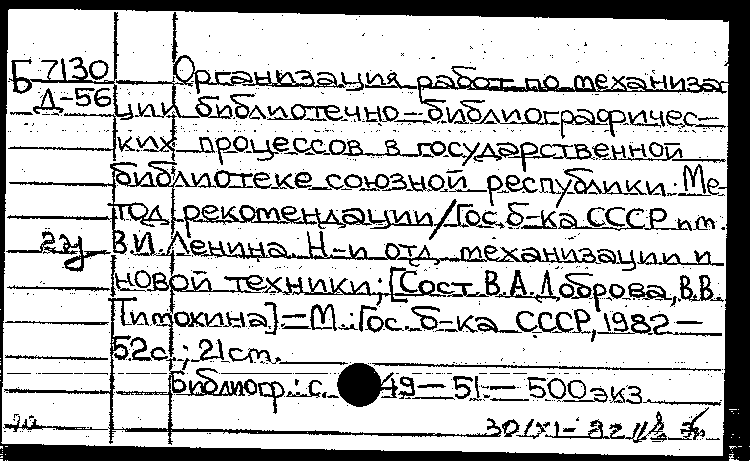 Б 7130 Организация работ по механиза
Д-56 ции библиотечно-библиографичес-
ких процессов в государственной
библиотеке союзной республики. Ме-
тод. рекомендации/Гос. б-ка СССР им.
2у В.И. Ленина. Н-и отд. механизации и
новой техники; [Сост В.А. Доброва, В.В.
Тимокина] - М.: Гос. б-ка СССР, 1982 -
52с.; 21см.
Библиогр.: с. 49-51. - 500 экз.
30/XI-82